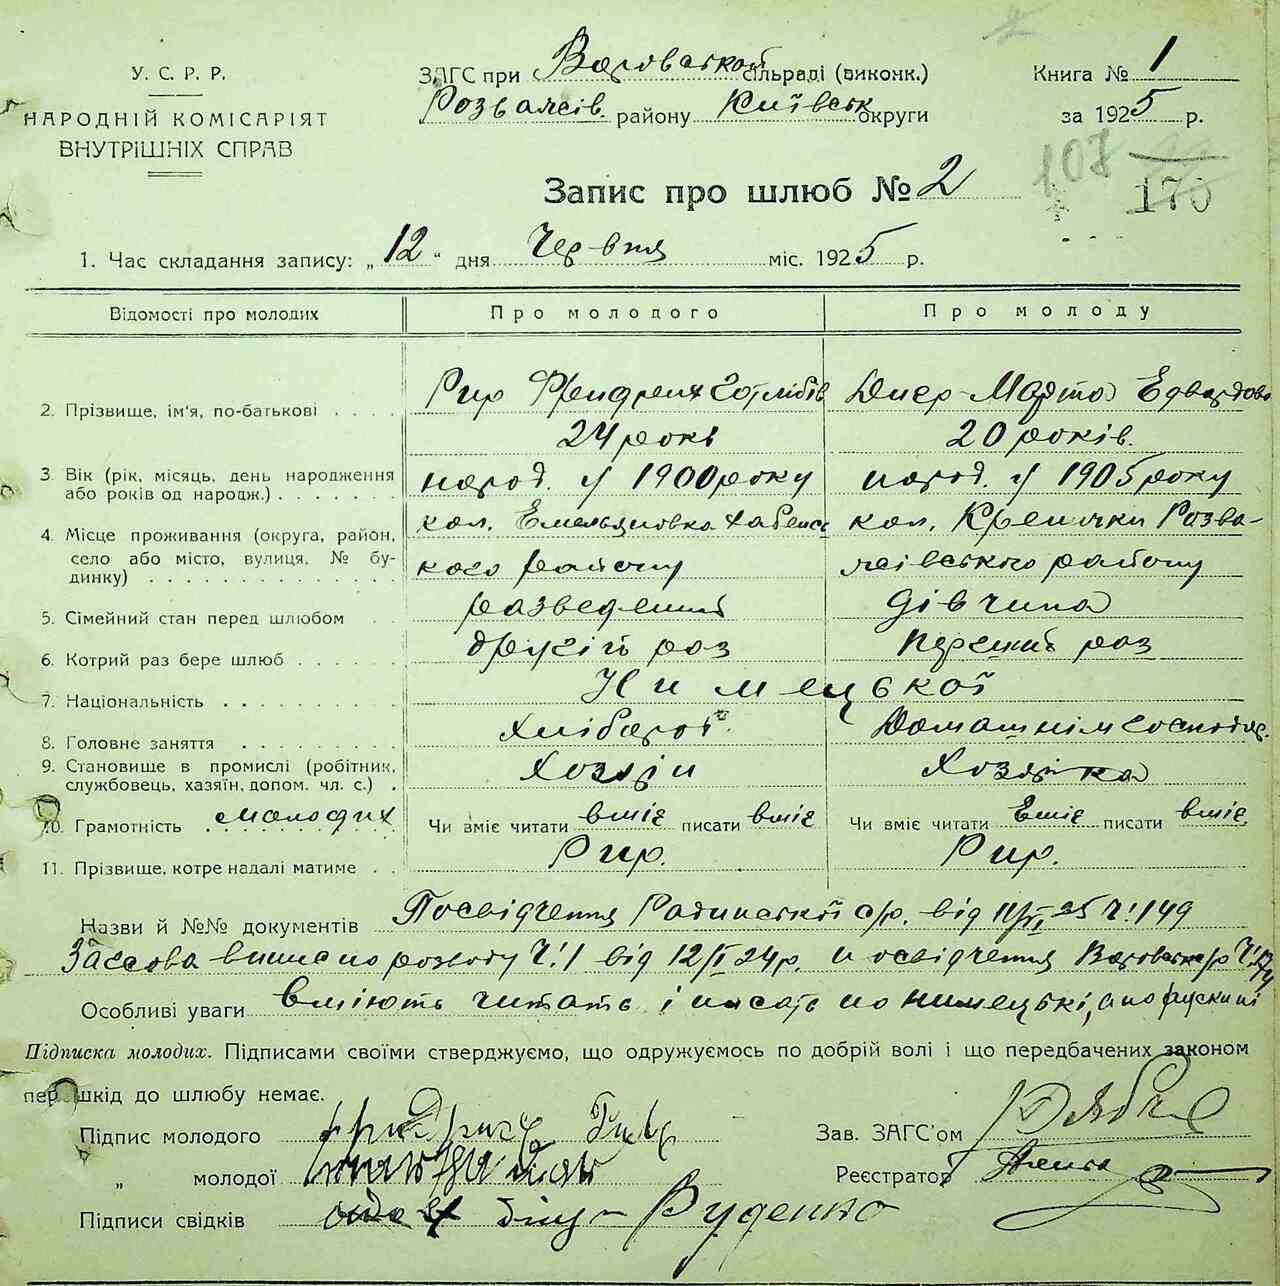 У. С. Р. Р.
НАРОДНІЙ КОМІСАРІЯТ
ВНУТРІШНІХ СПРАВ
ЗАГС при Варовській сільраді (виконк.)
Розважів. району Київськ округи
Книга № 1
за 1925 р.
107
170
Запис про шлюб № 2
1. Час складання запису: „12“ дня Червня міс. 1925 р.
Відомості про молодих Про молодого Про молоду
2. Прізвище, ім'я, по-батькові Рир Фридрих Готлібів Эдвардова
24 рокі 20 років.
3. Вік (рік, місяць, день народження або років од народж.) народ. у 1900 року народ. у 1905 року
4. Місце проживання (округа, район, село або місто, вулиця, № будинку) кол. Емельяновка Хабенс кол. Кренички Розва-
кого району жівського району
5. Сімейний стан перед шлюбом разведений дівчина
6. Котрий раз бере шлюб другій раз первий раз
7. Національність Нимецької
8. Головне заняття Хлібороб. Домашнім господар.
9. Становище в промислі (робітник, службовець, хазяїн, допом. чл. с.) Хозяін Хозяйка
10. Грамотність молодих Чи вміє читати вміє писати вміє Чи вміє читати вміє писати вміє
11. Прізвище, котре надалі матиме Рир. Рир.
Назви й №№ документів Посвідчення с/р. від 11/VI 25 ч. 149
виписа по розводу Ч. 1 від 12/I 24 р. и посвідчення с/р
Особливі уваги вміють читать і писать по нимецькі, а по руски ні
Підписка молодих. Підписами своїми стверджуємо, що одружуємось по добрій волі і що передбачених законом
перешкід до шлюбу немає.
Підпис молодого
Зав. ЗАГС'ом
„ молодої
Реєстратор
Підписи свідків Руденко